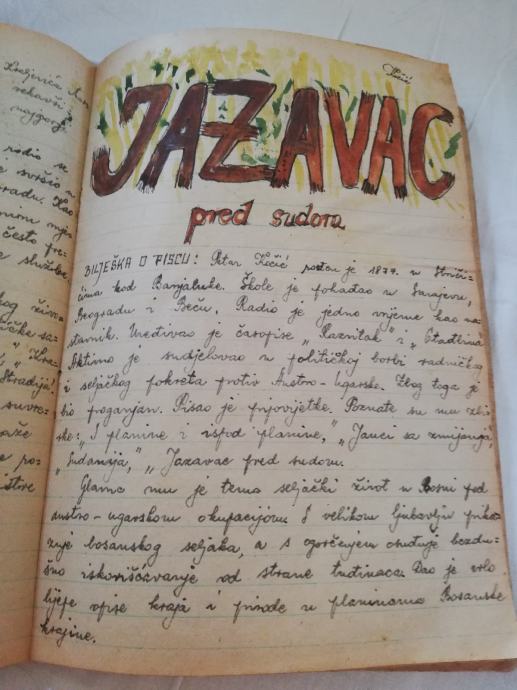 Kočić
JAZAVAC
pred sudom
BILJEŠKA O PISCU: Petar Kočić rođen je 1877. u Striči-
ćima kod Banjaluke. Škole je pohađao u Sarajevu,
Beogradu i Beču. Radio je jedno vrijeme kao na-
stavnik. Uređivao je časopise „Razvitak" i „Otadžbina"
Aktivno je sudjelovao u političkoj borbi radničkog
i seljačkog pokreta protiv Austro-Ugarske. Zbog toga je
bio proganjan. Pisao je pripovijetke. Poznate su mu zbir-
ke: „S planine i ispod planine," „Jauci sa zmijanja"
„Sudanija," „Jazavac pred sudom.
Glavna mu je tema seljački život u Bosni pod
austro-ugarskom okupacijom. S velikom ljubavlju prika-
zuje bosanskog seljaka, a s ogorčenjem osuđuje bezdu-
šno iskorišćavanje od strane tuđinaca. Dao je vrlo
lijepe opise kraja i prirode u planinama Bosanske
krajine.
radio se
je svršio u
gradu. Kao
često pre-
službe
kog živo-
Stradija
suvre-
kaže
je po-